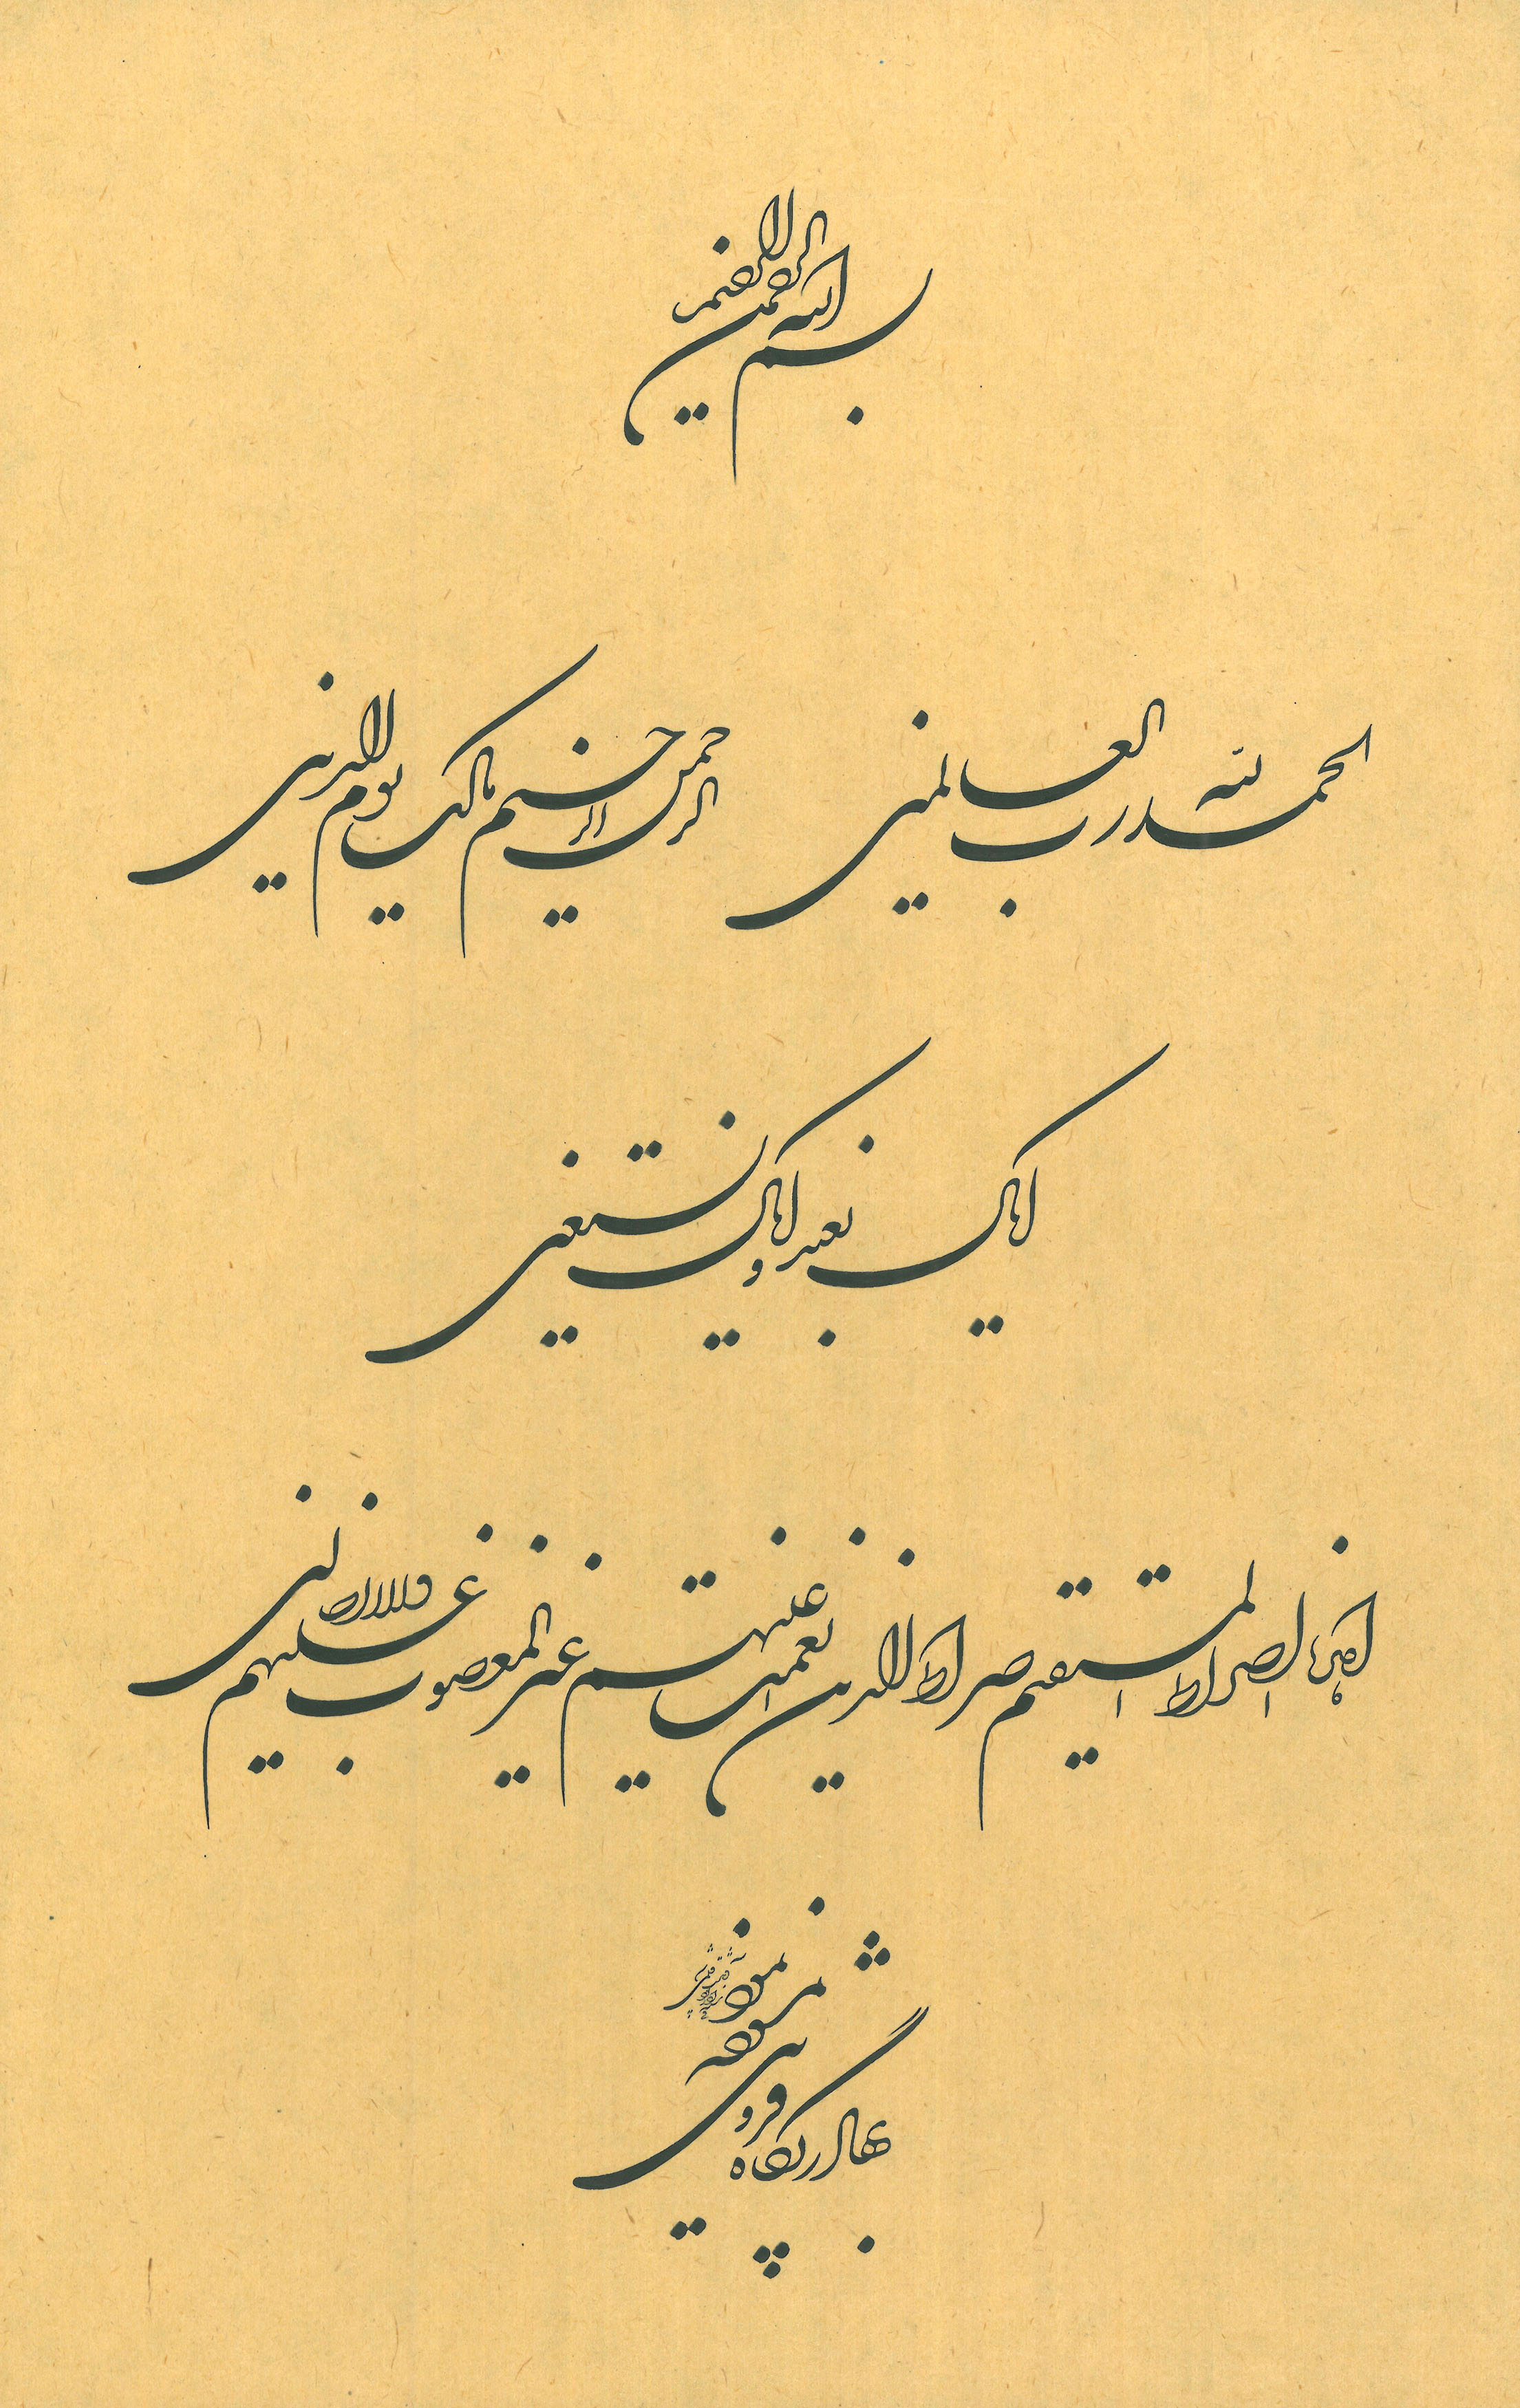 بسم الله الرحمن الرحیم
الحمد لله رب العالمین الرحمن الرحیم مالک یوم الدین
ایاک نعبد و ایاک نستعین
اهدنا الصراط المستقیم صراط الذین انعمت علیهم غیر المغضوب علیهم ولا الضالین